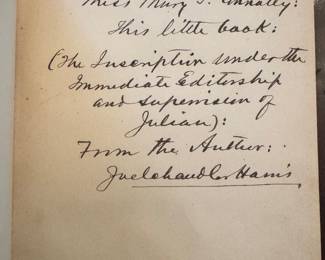 Miss Mary T. Connally:
This little book:
(The Inscription under the
Immediate Editorship
and supervision of
Julian):
From the Author:
Joel Chandler Harris